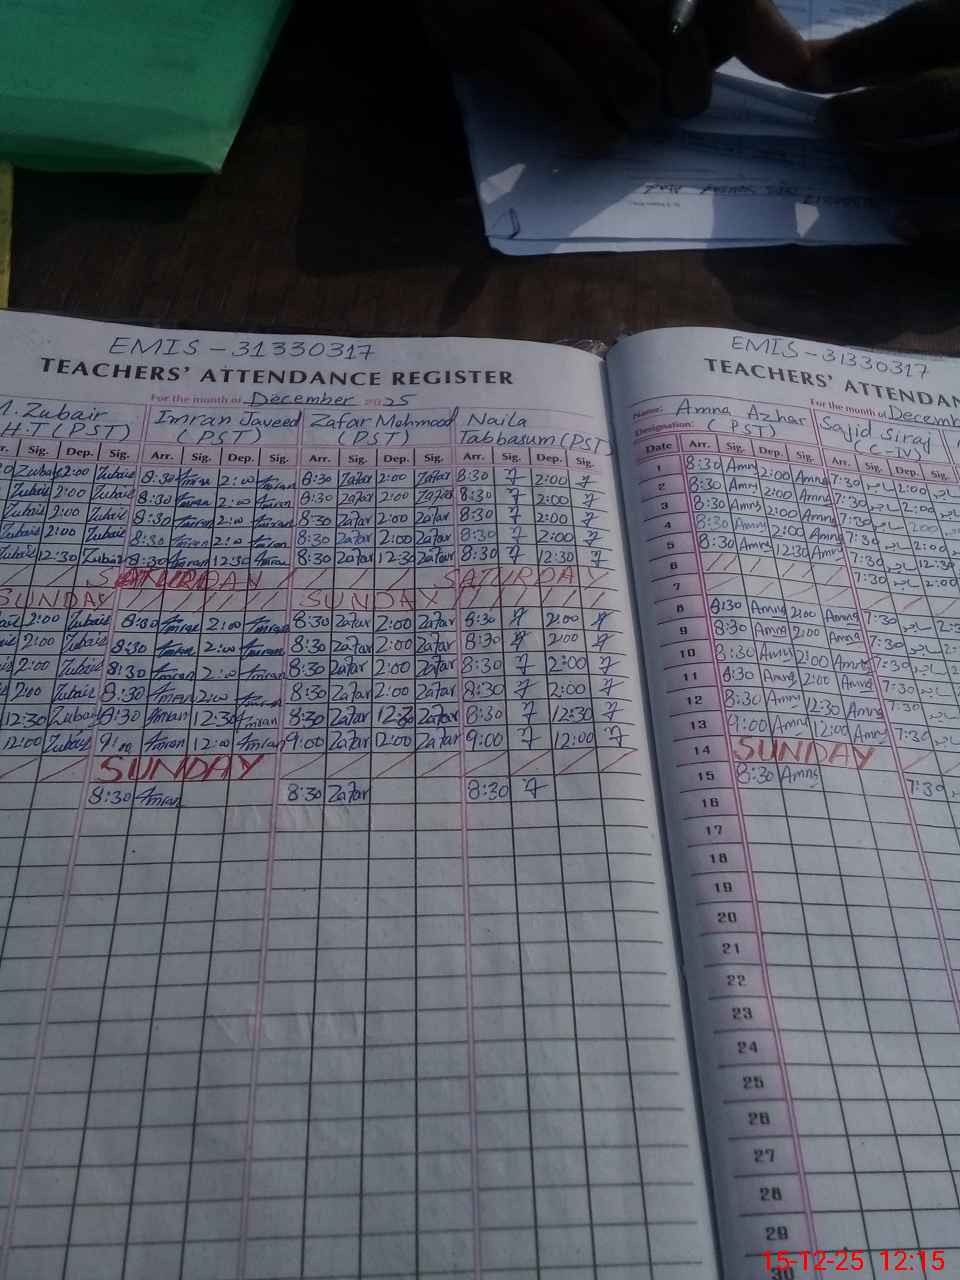 EMIS - 31330317
TEACHERS' ATTENDANCE REGISTER
For the month of December 2025
M. Zubair Imran Javeed Zafar Mehmood Naila
H.T (PST) (PST) (PST) Tabbasum (PST)
Sig. Dep. Sig. Arr. Sig. Dep. Sig. Arr. Sig. Dep. Sig. Arr. Sig. Dep. Sig.
Zubair 2:00 Zubair 8:30 Imran 2:00 Imran 8:30 Zafar 2:00 Zafar 8:30 2:00
Zubair 2:00 Zubair 8:30 Imran 2:00 Imran 8:30 Zafar 2:00 Zafar 8:30 2:00
Zubair 2:00 Zubair 8:30 Imran 2:00 Imran 8:30 Zafar 2:00 Zafar 8:30 2:00
Zubair 2:00 Zubair 8:30 Imran 2:00 Imran 8:30 Zafar 2:00 Zafar 8:30 2:00
Zubair 12:30 Zubair 8:30 Imran 12:30 Imran 8:30 Zafar 12:30 Zafar 8:30 12:30
SATURDAY SATURDAY
SUNDAY SUNDAY
2:00 Zubair 8:30 Imran 2:00 Imran 8:30 Zafar 2:00 Zafar 8:30 2:00
2:00 Zubair 8:30 Imran 2:00 Imran 8:30 Zafar 2:00 Zafar 8:30 2:00
2:00 Zubair 8:30 Imran 2:00 Imran 8:30 Zafar 2:00 Zafar 8:30 2:00
2:00 Zubair 8:30 Imran 2:00 Imran 8:30 Zafar 2:00 Zafar 8:30 2:00
12:30 Zubair 8:30 Imran 12:30 Imran 8:30 Zafar 12:30 Zafar 8:30 12:30
12:00 Zubair 9:00 Imran 12:00 Imran 9:00 Zafar 12:00 Zafar 9:00 12:00
SUNDAY
8:30 Imran 8:30 Zafar 8:30
EMIS - 31330317
TEACHERS' ATTENDAN
For the month of Decemb
Name: Amna Azhar Sajid Siraj
Designation: (PST) (C-IV)
Date Arr. Sig. Dep. Sig. Arr. Sig. Dep. Sig.
1 8:30 Amna 2:00 Amna 7:30 2:00
2 8:30 Amna 2:00 Amna 7:30 2:00
3 8:30 Amna 2:00 Amna 7:30 2:00
4 8:30 Amna 2:00 Amna 7:30 2:00
5 8:30 Amna 12:30 Amna 7:30 12:30
6 7:30 2:00
7
8 8:30 Amna 2:00 Amna 7:30
9 8:30 Amna 2:00 Amna 7:30
10 8:30 Amna 2:00 Amna 7:30
11 8:30 Amna 2:00 Amna 7:30
12 8:30 Amna 12:30 Amna 7:30
13 9:00 Amna 12:00 Amna 7:30
14 SUNDAY
15 8:30 Amna 7:30
16
17
18
19
20
21
22
23
24
25
26
27
28
29
30
15-12-25 12:15